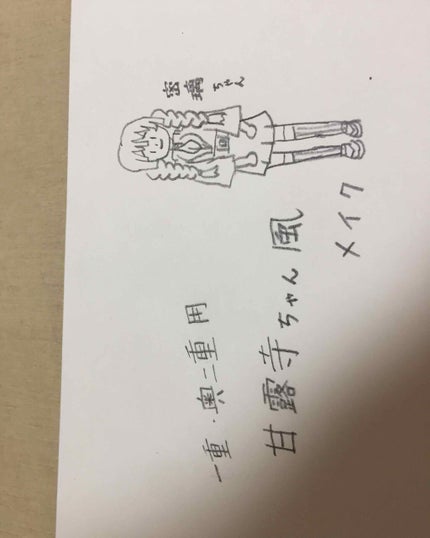 一重・奥二重用
甘露寺ちゃん風
メイク
密璃ちゃん